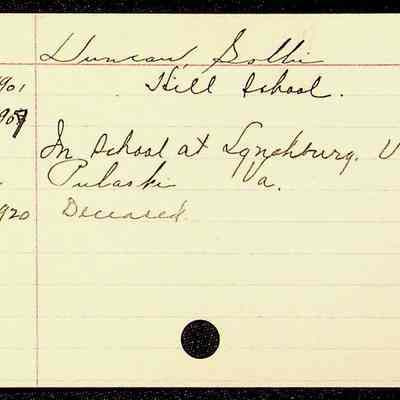 Duncan, Gollie
901 Hill School.
909
In School at Lynchburg. V
Pulaski Va.
920 Deceased